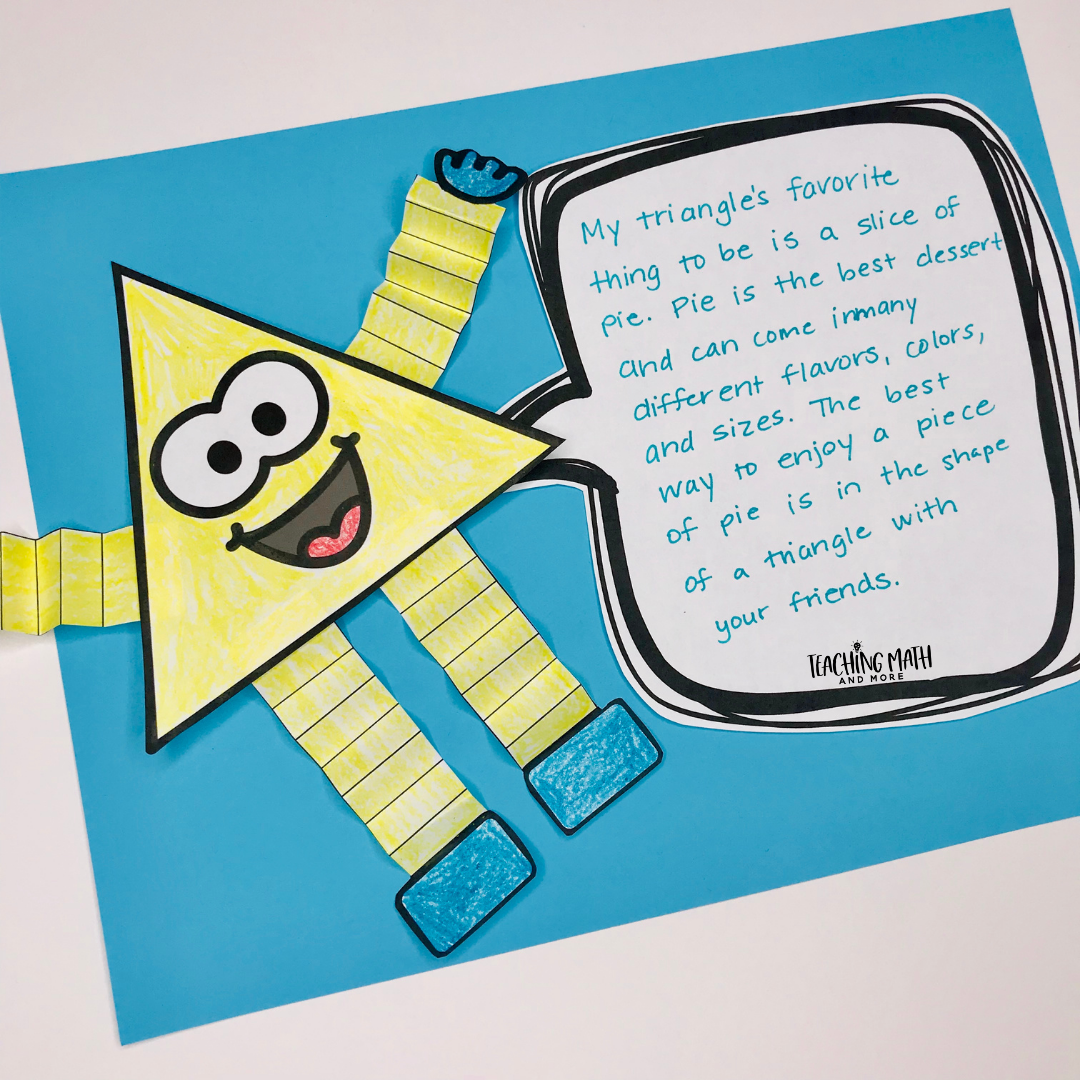 My triangle's favorite
thing to be is a slice of
pie. Pie is the best dessert
and can come inmany
different flavors, colors,
and sizes. The best
way to enjoy a piece
of pie is in the shape
of a triangle with
your friends.
TEACHING MATH
AND MORE